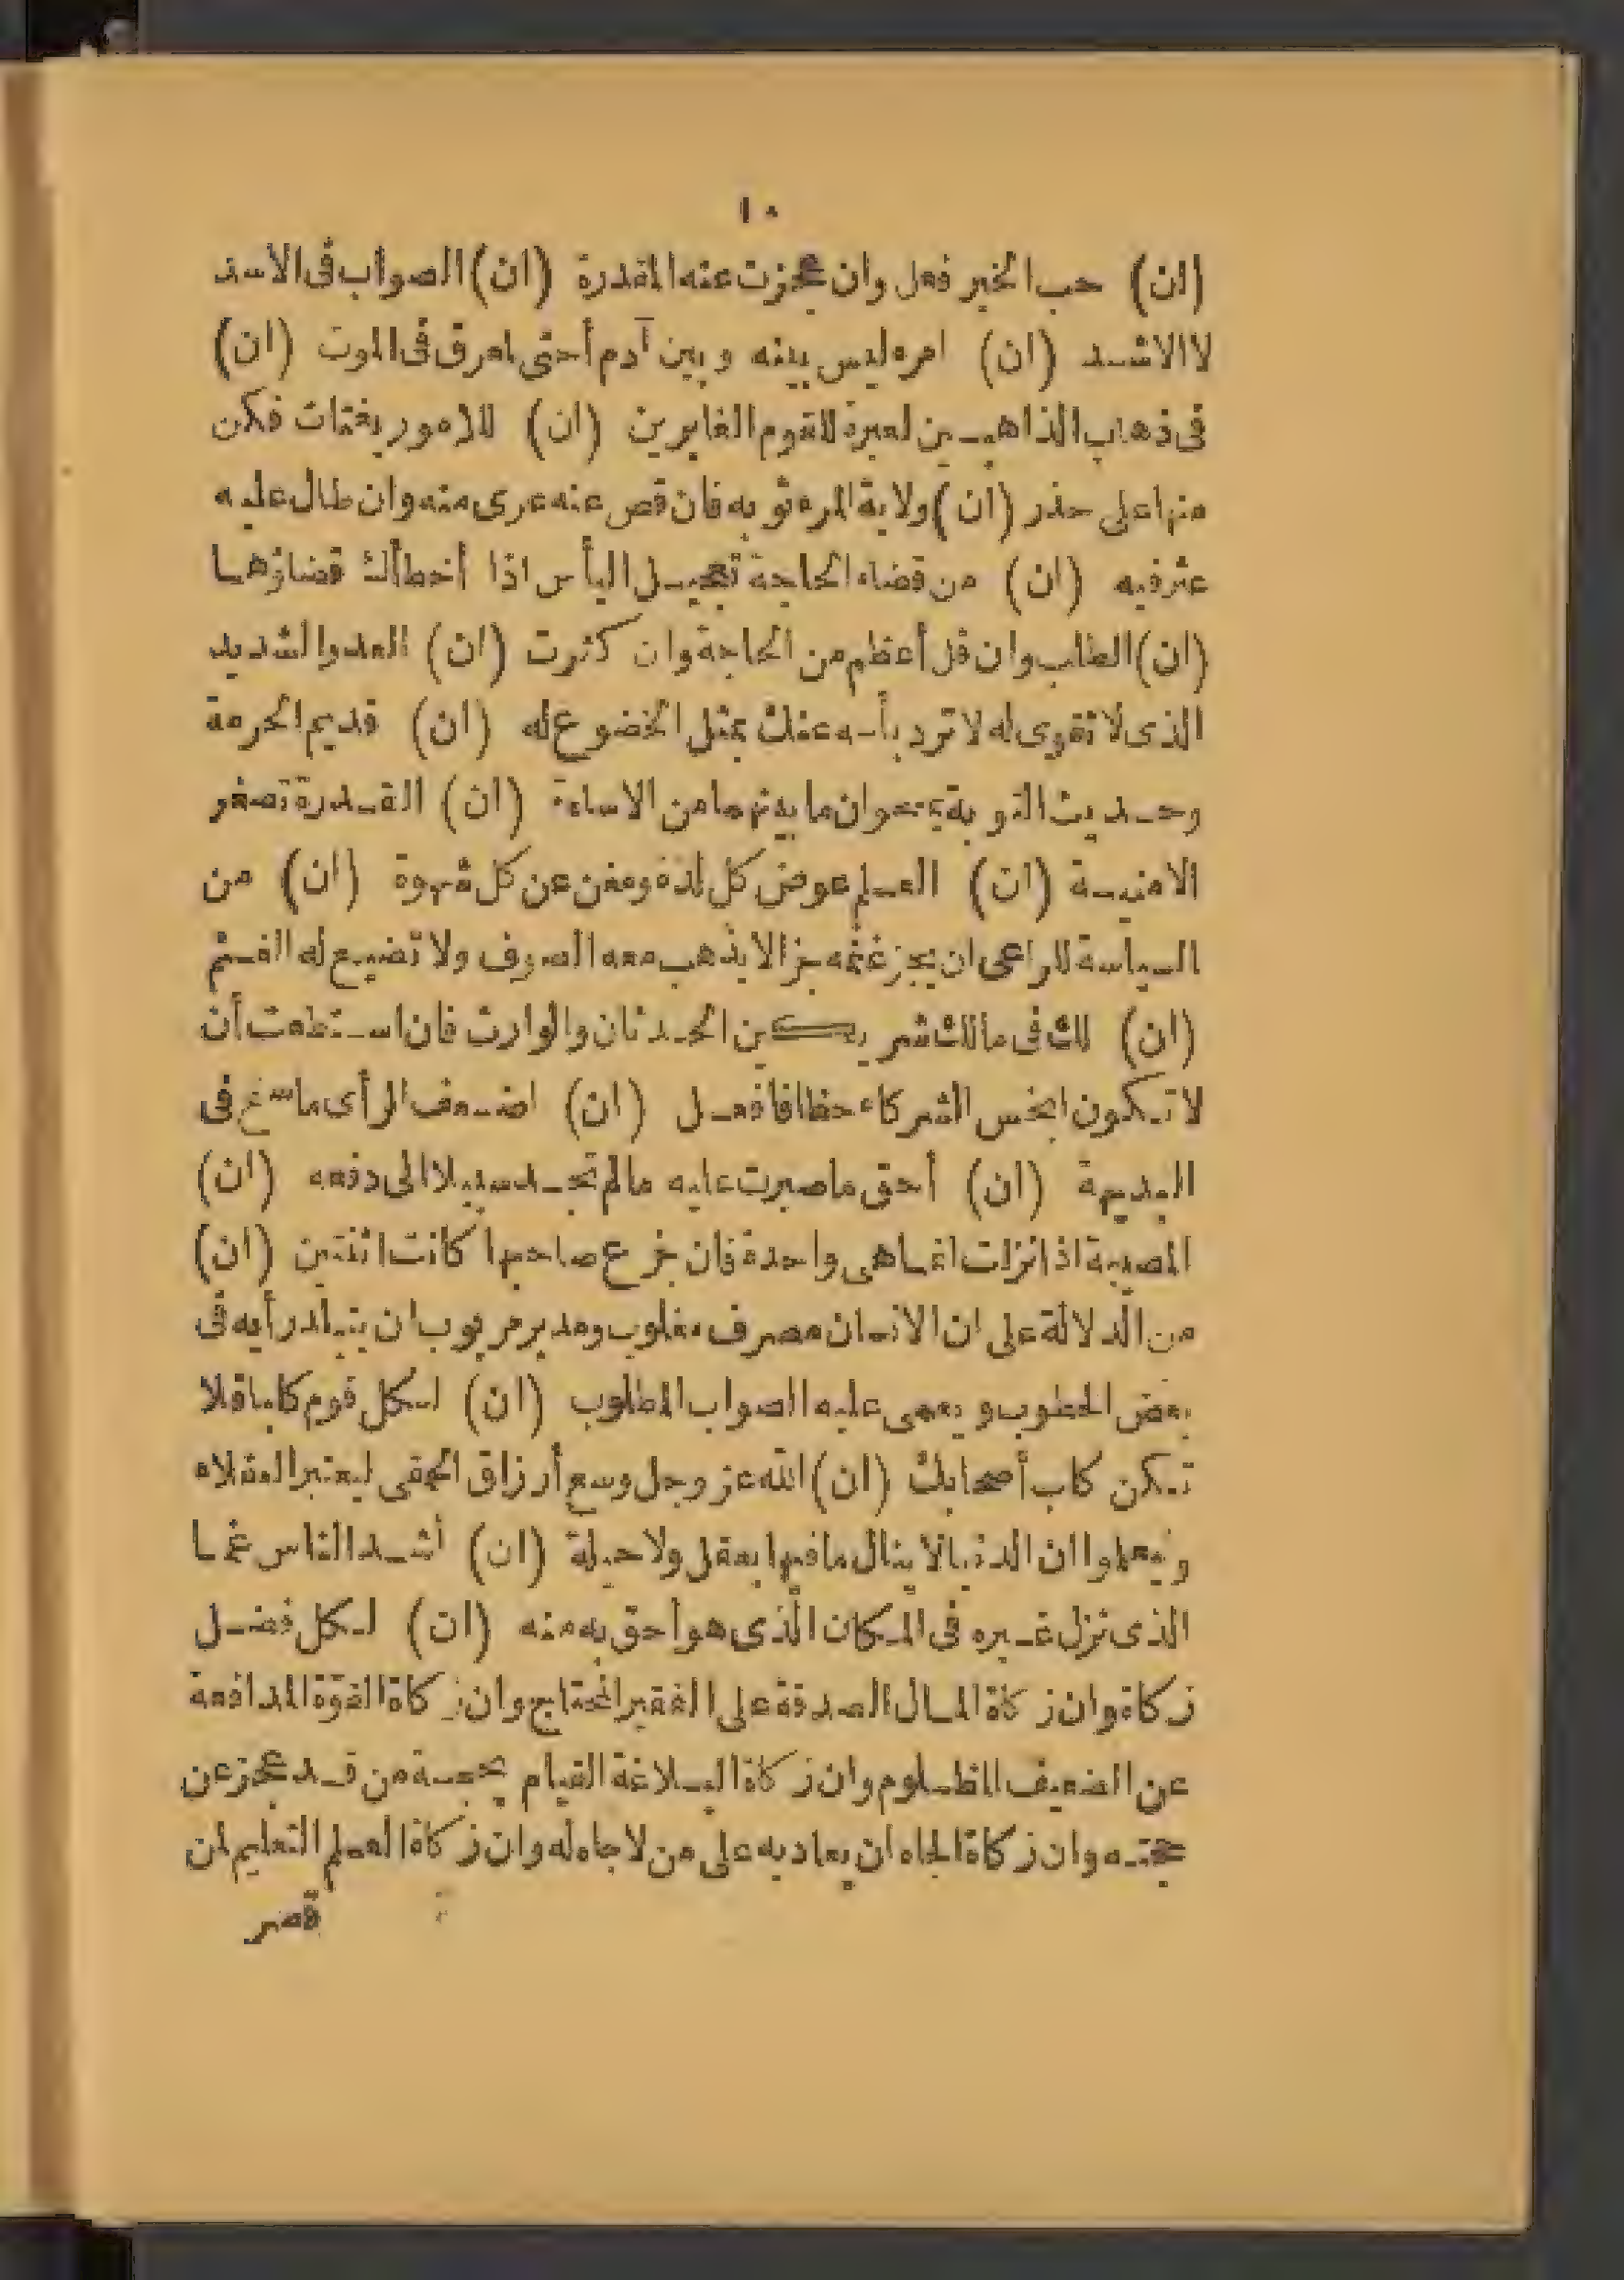 ١٠
(ان) حب الخير فعل وان عجزت عنه المقدرة (ان) الصواب فى الاسد
لا الاشد (ان) امرء ليس بينه وبين آدم أحتى لعرق فى الموت (ان)
فى ذهاب الذاهبين لعبرة للقوم الغابرين (ان) للامور بغتات فكن
منها على حذر (ان) ولاية المرء ثوبه فان قصر عنه عرى منه وان طال عليه
عثر فيه (ان) من قضاء الحاجة تعجيل اليأس اذا أخطأك قضاؤها
(ان) الطلب وان قل أعظم من الحاجة وان كثرت (ان) العدو الشديد
الذى لا تقوى له لا ترد بأسه عنك بمثل الخضوع له (ان) قديم الحرمة
وحديث التوبة يمحوان ما بينهما من الاساءة (ان) القدرة تصغر
الامنية (ان) العلم عوض كل لذة ومغن عن كل شهوة (ان) من
السياسة للراعى ان يجز غنمه جزا لا يذهب معه الصوف ولا تضيع له الغنم
(ان) لك فى مالك شريكين الحدثان والوارث فان استطعت أن
لا تكون ابخس الشركاء حظا فافعل (ان) اضعف الرأى ما سنح فى
البديهة (ان) أحق ما صبرت عليه مالم تجد سبيلا الى دفعه (ان)
المصيبة اذا نزلت انما هى واحدة فان جزع صاحبها كانت اثنتين (ان)
من الدلالة على ان الانسان مصرف مغلوب ومدبر مربوب ان يتبلد رأيه فى
بعض الخطوب ويعمى عليه الصواب المطلوب (ان) لكل قوم كلبا فلا
تكن كلب أصحابك (ان) الله عز وجل وسع أرزاق الحمقى ليعتبر العقلاء
ويعلموا ان الدنيا لا ينال ما فيها بعقل ولا حيلة (ان) أشد الناس غما
الذى نزل غيره فى المكان الذى هو أحق به منه (ان) لكل فضل
زكاة وان زكاة المال الصدقة على الفقير المحتاج وان زكاة القوة المدافعة
عن الضعيف المظلوم وان زكاة البلاغة القيام بحجة من قد عجز عن
حجته وان زكاة الجاه ان يعاد به على من لا جاه له وان زكاة العلم التعليم لمن
قصر